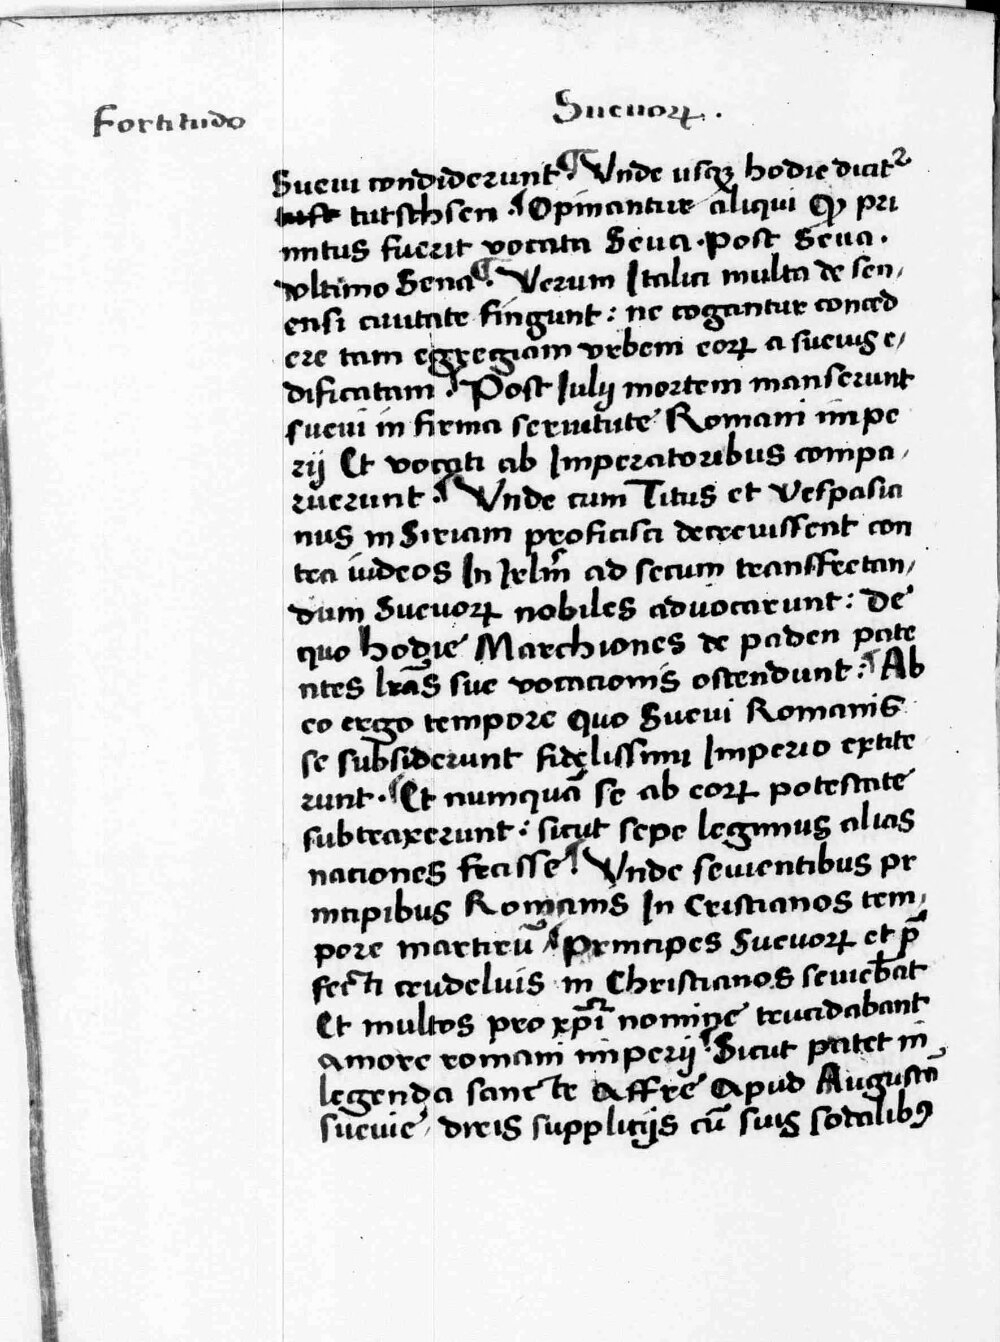 Fortitudo
Sueuoꝝ.
Sueui condiderunt ¶ Vnde usqꝫ hodie dicit᷑
tutschsen ¶ Opinantur aliqui ꝙ pri
mitus fuerit vocata Seua . Post Sena .
vltimo Sena ¶ Verum Italici multa de sen,
ensi ciuitate fingunt : ne cogantur conced
ere tam egregiam vrbem eoꝝ a sueuis e,
dificatam ¶ Post Iulij mortem manserunt
sueui in firma seruitute Romani impe
rij Et vocati ab Imperatoribus compa,
ruerunt ¶ Vnde cum Titus et vespasia
nus in Siriam proficisci decreuissent con
tra iudeos In Irlm̄ ad secum transfretan,
dum Sueuoꝝ nobiles aduocarunt : De
quo hodie Marchiones de paden pate
ntes lr̄as sue vocacionis ostendunt : ¶ Ab
eo ergo tempore quo Sueui Romanis
se subsiderunt fidelissimi Imperio extite
runt . ¶ Et numquā se ab eoꝝ potestate
subtraxerunt : sicut sepe legimus alias
naciones fecisse ¶ Vnde seuientibus pr
incipibus Romanis In Cristianos tem,
pore martirū ¶ Principes Sueuoꝝ et p̄
fecti crudelius in Christianos seuiebāt
Et multos pro xp̄i nomine trucidabant
amore romani imperij ¶ Sicut patet in
legenda sancte Affre Apud Augustā
sueuie, diris supplicijs cū suis sodalibꝰ